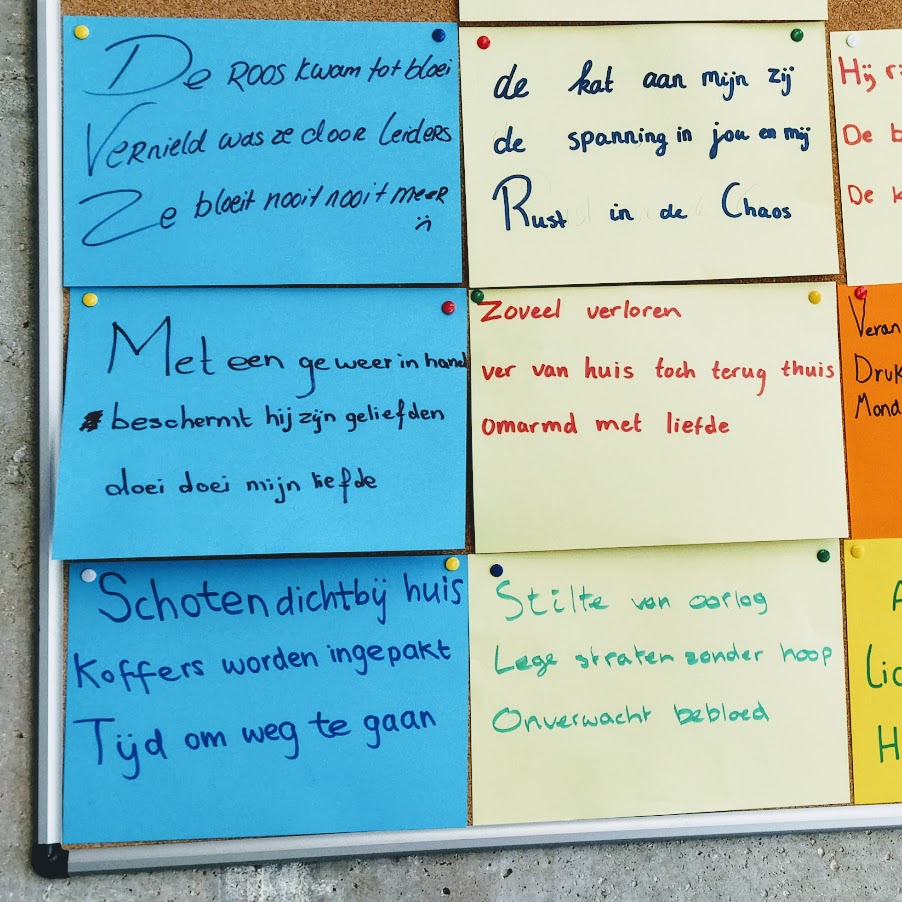 De ROOS kwam tot bloei
Vernield was ze door Leiders
Ze bloeit nooit nooit meer
:(
de kat aan mijn zij
de spanning in jou en mij
Rust in de Chaos
Hij
De
De
Met een geweer in hand
beschermt hij zijn geliefden
doei doei mijn liefde
Zoveel verloren
ver van huis toch terug thuis
omarmd met liefde
Veran
Druk
Mond
Schoten dichtbij huis
Koffers worden ingepakt
Tijd om weg te gaan
Stilte van oorlog
Lege straten zonder hoop
Onverwacht bebloed
A
Lic
H